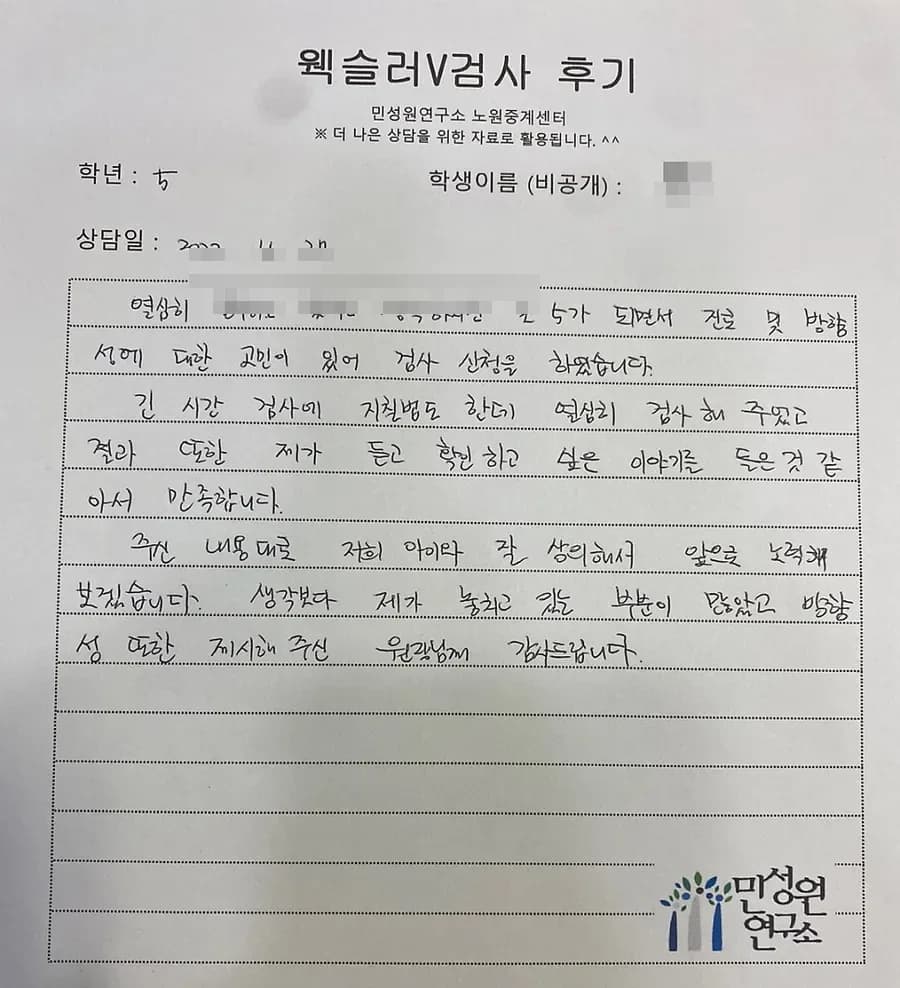 웩슬러V검사 후기
민성원연구소 노원중계센터
※ 더 나은 상담을 위한 자료로 활용됩니다. ^^
학년 : 5
학생이름 (비공개) :
상담일 :
열심히 5가 되면서 진로 및 방향
성에 대한 고민이 있어 검사 신청을 하였습니다.
긴 시간 검사에 지칠법도 한데 열심히 검사해 주었고
결과 또한 제가 듣고 확인하고 싶은 이야기를 들은 것 같
아서 만족합니다.
주신 내용대로 저희 아이와 잘 상의해서 앞으로 노력해
보겠습니다. 생각보다 제가 놓치고 있는 부분이 많았고 방향
성 또한 제시해 주신 원장님께 감사드립니다.
민성원
연구소